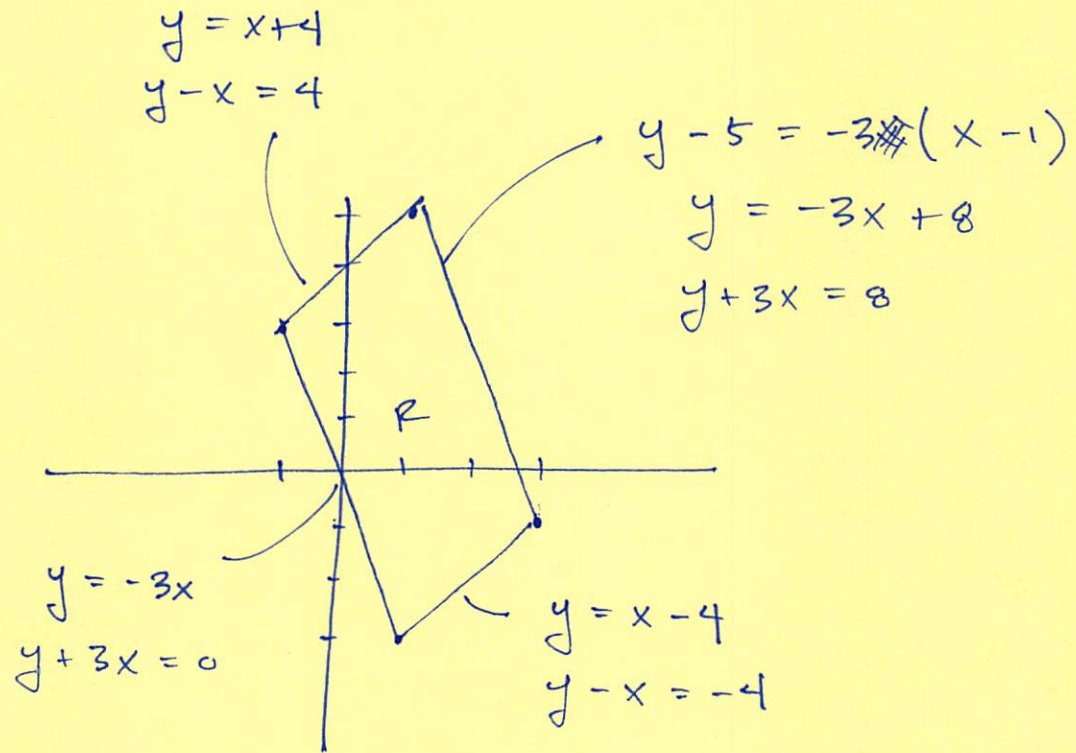 y = x+4
y - x = 4
y - 5 = -3(x - 1)
y = -3x + 8
y + 3x = 8
R
y = -3x
y + 3x = 0
y = x - 4
y - x = -4